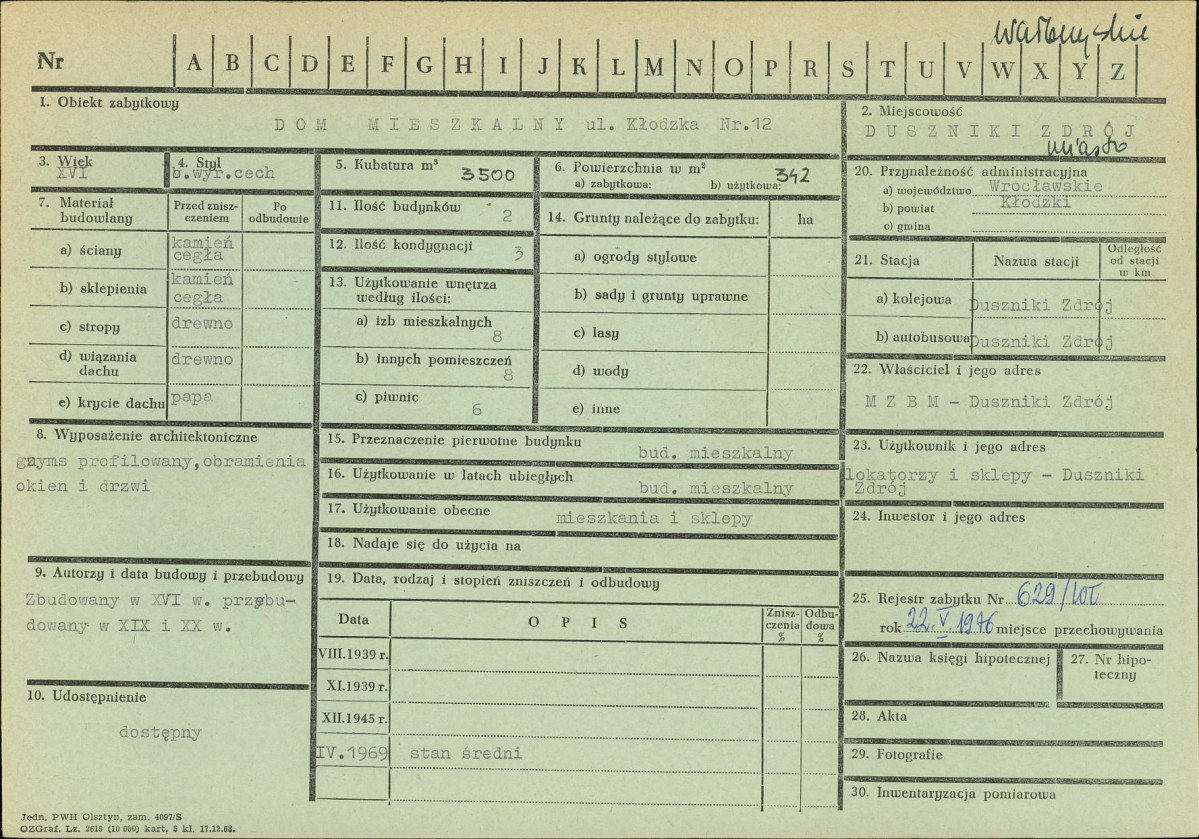 Wałbrzyskie
Nr A B C D E F G H I J K L M N O P R S T U V W X Y Z
1. Obiekt zabytkowy
DOM MIESZKALNY ul. Kłodzka Nr.12
2. Miejscowość
DUSZNIKI ZDRÓJ
miasto
3. Wiek
XVI
4. Styl
b.wyr.cech
5. Kubatura m³
3500
6. Powierzchnia w m²
a) zabytkowa: b) użytkowa: 342
20. Przynależność administracyjna
a) województwo Wrocławskie
b) powiat Kłodzki
c) gmina
7. Materiał budowlany
Przed zniszczeniem
Po odbudowie
a) ściany kamień cegła
b) sklepienia kamień cegła
c) stropy drewno
d) wiązania dachu drewno
e) krycie dachu papa
11. Ilość budynków
2
12. Ilość kondygnacji
3
13. Użytkowanie wnętrza
według ilości:
a) izb mieszkalnych
8
b) innych pomieszczeń
8
c) piwnic
6
14. Grunty należące do zabytku: ha
a) ogrody stylowe
b) sady i grunty uprawne
c) lasy
d) wody
e) inne
21. Stacja Nazwa stacji Odległość od stacji w km
a) kolejowa Duszniki Zdrój
b) autobusowa Duszniki Zdrój
22. Właściciel i jego adres
M Z B M - Duszniki Zdrój
8. Wyposażenie architektoniczne
gzyms profilowany,obramienia
okien i drzwi
15. Przeznaczenie pierwotne budynku
bud. mieszkalny
16. Użytkowanie w latach ubiegłych
bud. mieszkalny
17. Użytkowanie obecne
mieszkania i sklepy
18. Nadaje się do użycia na
23. Użytkownik i jego adres
lokatorzy i sklepy - Duszniki
Zdrój
24. Inwestor i jego adres
9. Autorzy i data budowy i przebudowy
Zbudowany w XVI w. przebu-
dowany w XIX i XX w.
19. Data, rodzaj i stopień zniszczeń i odbudowy
Data OPIS Znisz-czenia % Odbu-dowa %
VIII.1939 r.
XI.1939 r.
XII.1945 r.
IV.1969 stan średni
25. Rejestr zabytku Nr 629/WŁ
rok 22.V.1976 miejsce przechowywania
26. Nazwa księgi hipotecznej
27. Nr hipo-
teczny
10. Udostępnienie
dostępny
28. Akta
29. Fotografie
30. Inwentaryzacja pomiarowa
Jedn. PWH Olsztyn, zam. 4097/S
OZGraf. Lz. 2619 (10 000) kart, 5 kl. 17.12.68.